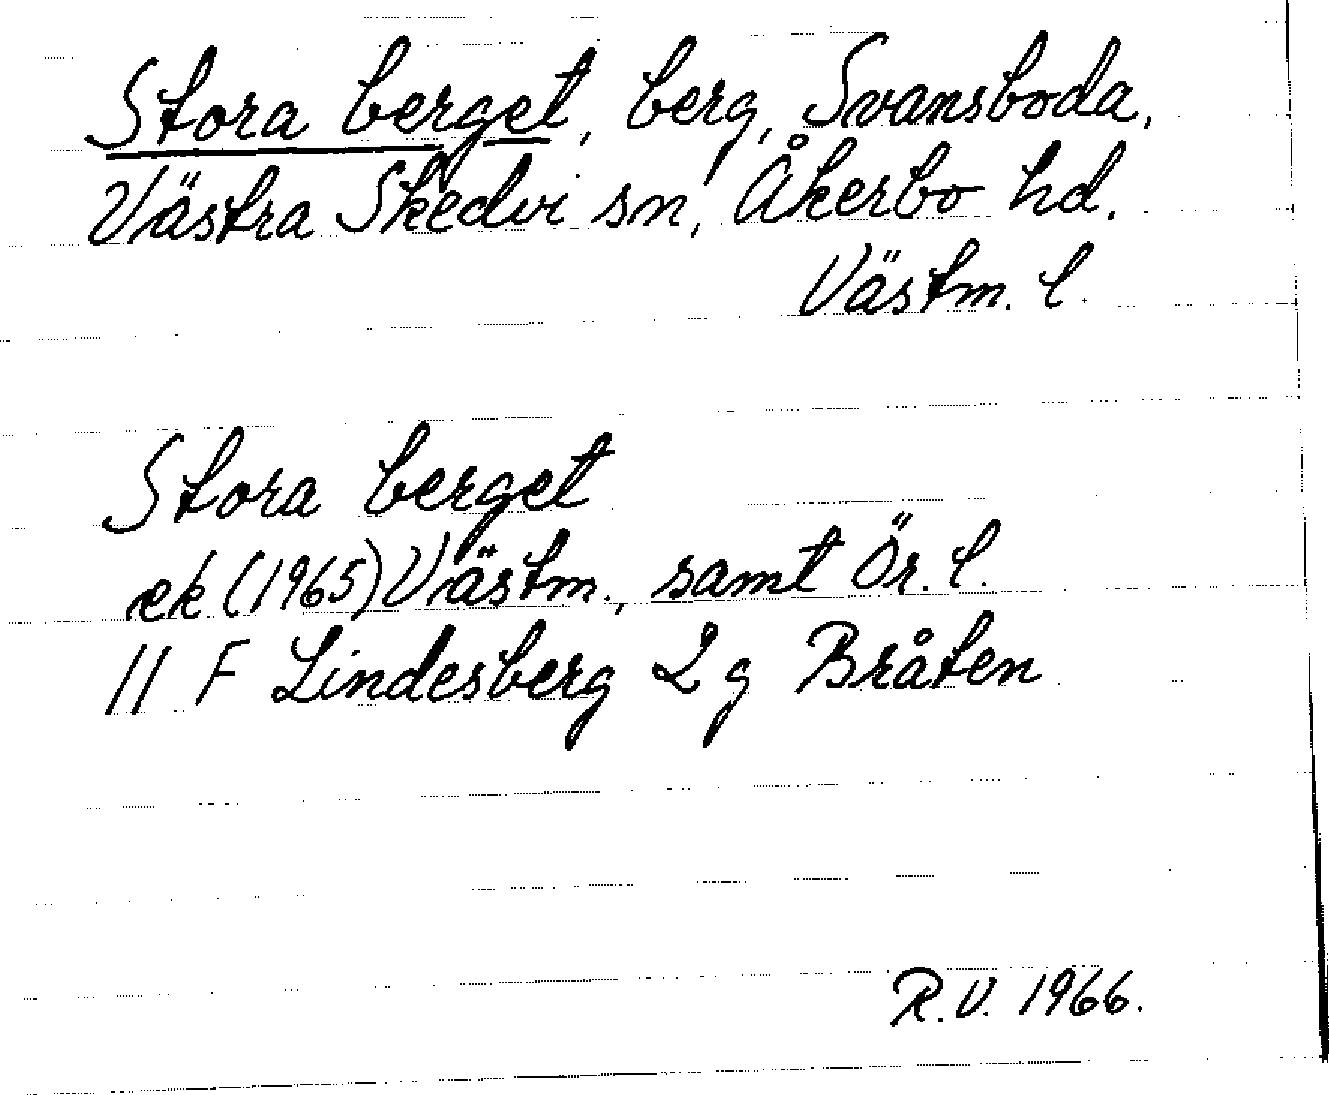 Stora berget, berg, Svansboda,
Västra Skedvi sn, Åkerbo hd.
Västm. l.
Stora berget
ek (1965) Västm., samt Ör. l.
11 F Lindesberg 2 g Bråten
R.V. 1966.